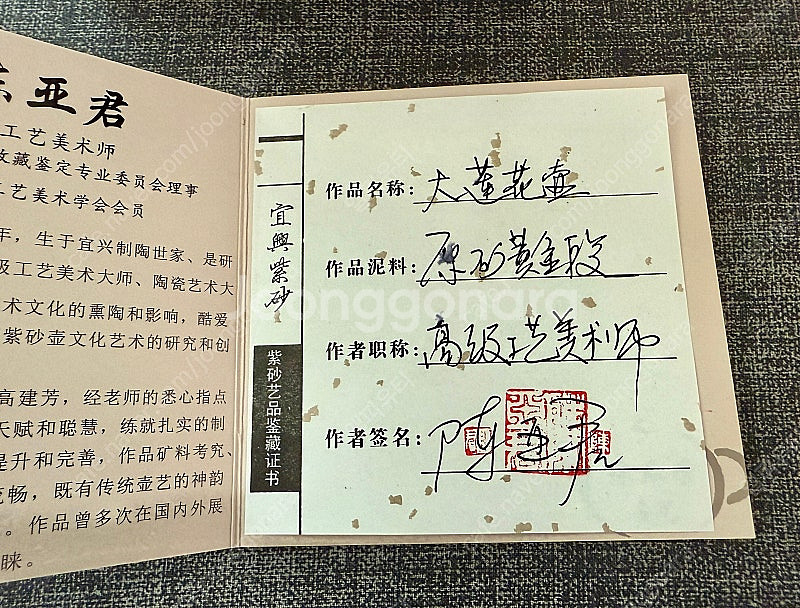 亚君
工艺美术师
收藏鉴定专业委员会理事
工艺美术学会会员
年，生于宜兴制陶世家、是研
级工艺美术大师、陶瓷艺术大
术文化的熏陶和影响，酷爱
紫砂壶文化艺术的研究和创
高建芳，经老师的悉心指点
天赋和聪慧，练就扎实的制
提升和完善，作品矿料考究、
流畅，既有传统壶艺的神韵
。作品曾多次在国内外展
睐。
宜興紫砂
紫砂艺品鉴藏证书
作品名称：大莲花壶
作品泥料：原矿黄金段
作者职称：高级工艺美术师
作者签名：陈亚君
joonggonara